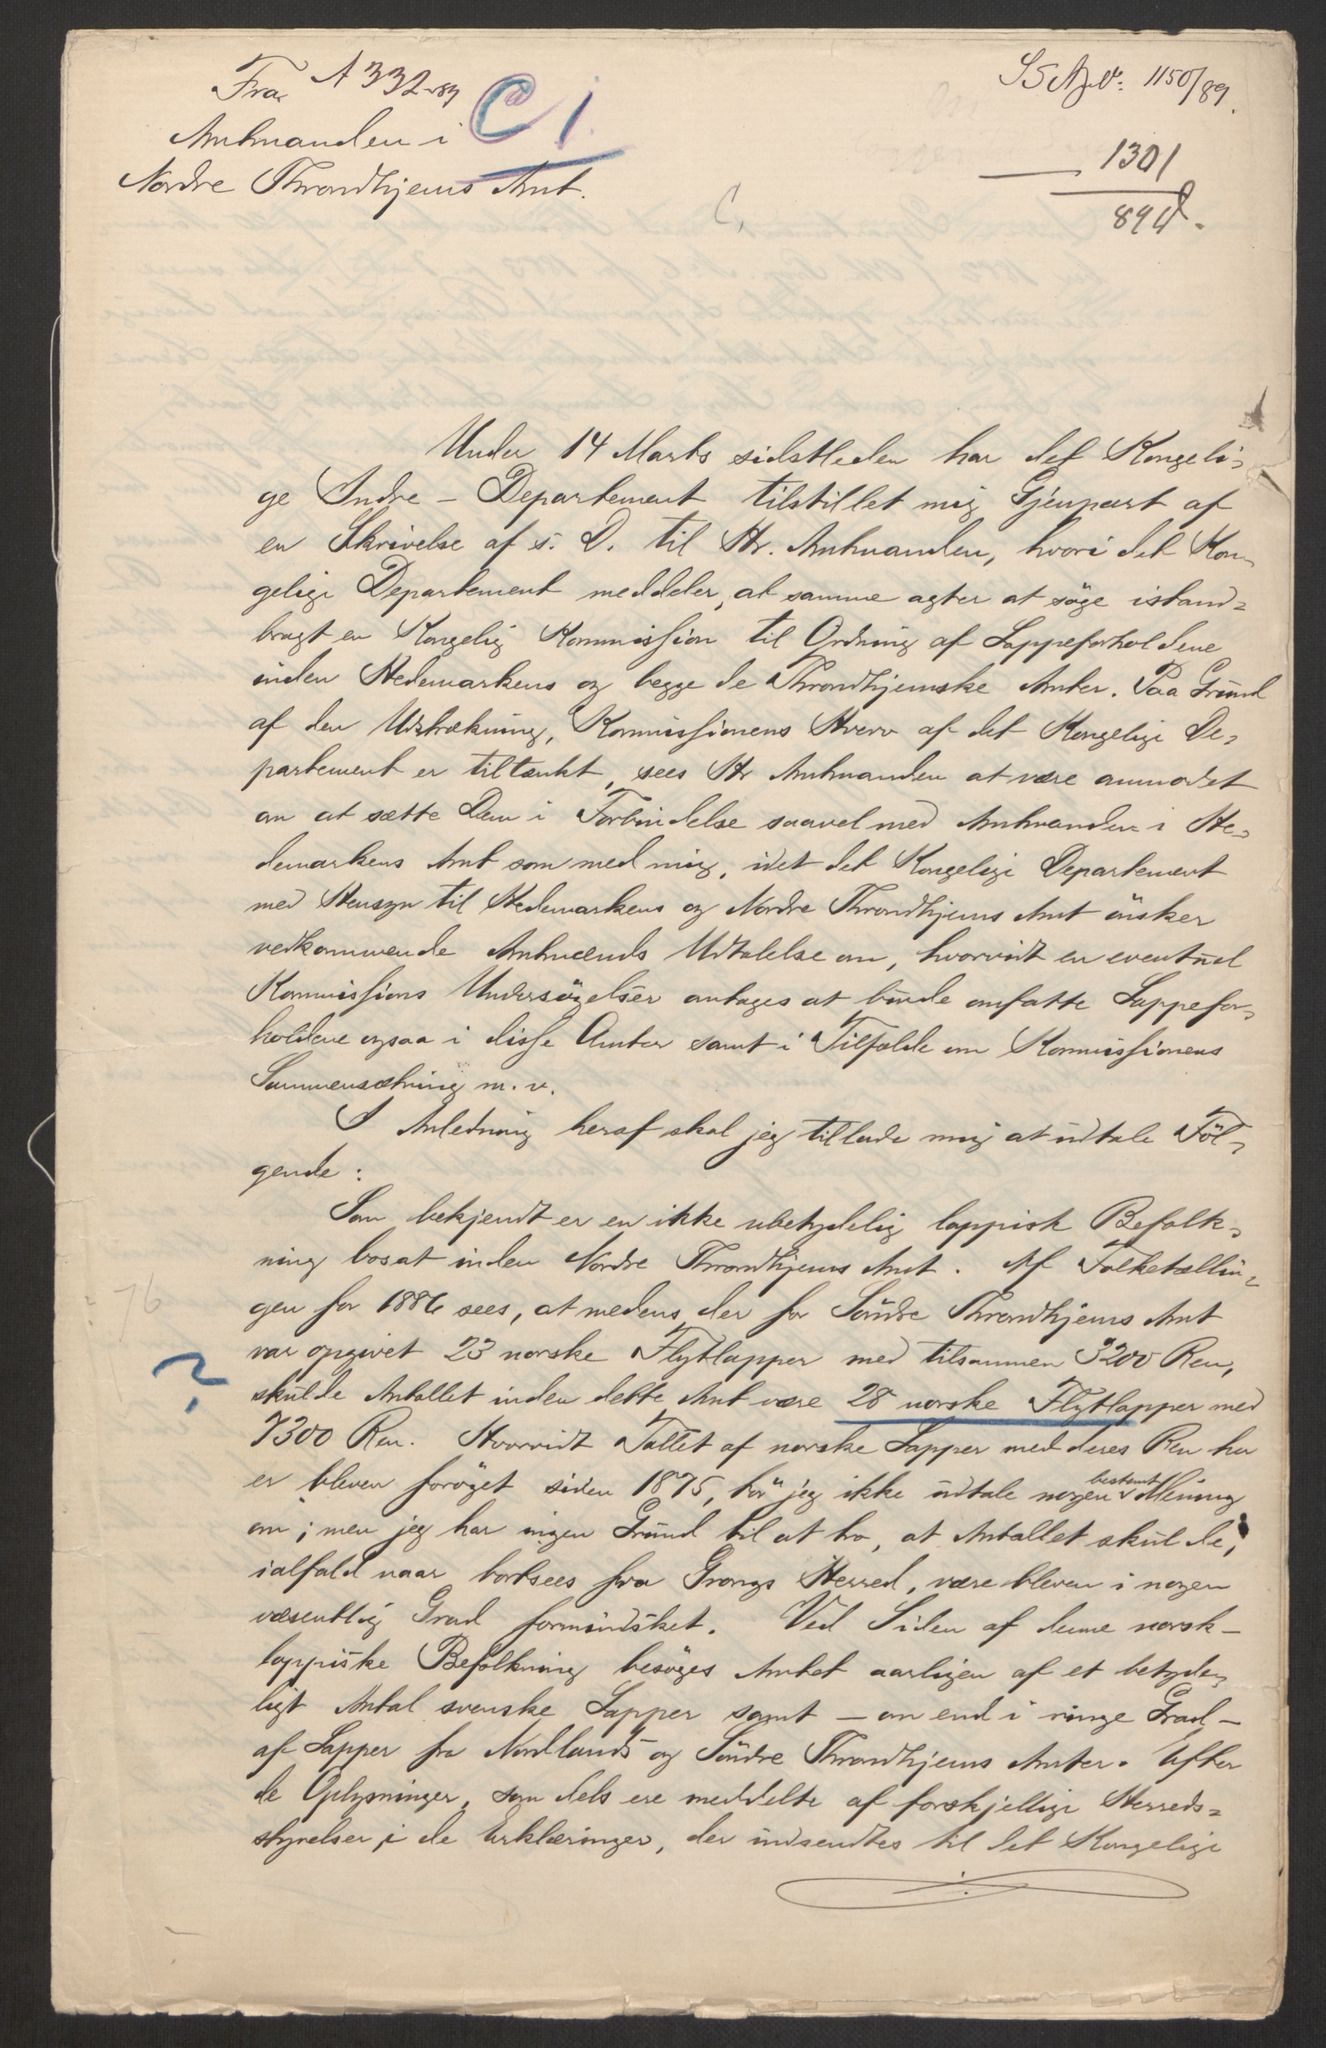 Fra A 332-89 C 1.
Amtmanden i
Nordre Throndhjems Amt.
1150/89.
1301
89
C,
Under 14 Marts sidstleden har det Kongeli-
ge Indre-Departement tilstillet mig Gjenpart af
en Skrivelse af s. D. til Hr. Amtmanden, hvori det Kon-
gelige Departement meddeler, at samme agter at søge istand-
bragt en Kongelig Kommission til Ordning af Lappeforholdene
inden Hedemarkens og begge de Throndhjemske Amter. Paa Grund
af den Udstrækning, Kommissionens Hverv af det Kongelige De-
partement er tiltænkt, sees Hr Amtmanden at være anmodet
om at sætte Dem i Forbindelse saavel med Amtmanden i He-
demarkens Amt som med mig, idet det Kongelige Departement
med Hensyn til Hedemarkens og Nordre Throndhjems Amt ønsker
vedkommende Amtmænds Udtalelse om, hvorvidt en eventuel
Kommissions Undersøgelser antages at burde omfatte Lappefor-
holdene ogsaa i disse Amter samt i Tilfælde om Kommissionens
Sammensætning m. v.
I Anledning heraf skal jeg tillade mig at udtale Föl-
gende:
Som bekjendt er en ikke ubetydelig lappisk Befolk-
ning bosat inden Nordre Throndhjems Amt. Af Folketællin-
76
gen for 1886 sees, at medens der for Søndre Throndhjems Amt
var opgivet 23 norske Flytlapper med tilsammen 3200 Ren,
?
skulde Antallet inden dette Amt være 28 norske Flytlapper med
7300 Ren. Hvorvidt Tallet af norske Lapper med deres Ren her
er bleven forøget siden 1875, tör jeg ikke udtale nogen bestemt Mening
om; men jeg har ingen Grund til at tro, at Antallet skulde,
ialfald naar bortsees fra Grongs Herred, være bleven i nogen
væsentlig Grad formindsket. Ved Siden af denne norsk-
lappiske Befolkning besøges Amtet aarligen af et betyde-
ligt Antal svenske Lapper samt – om end i ringe Grad –
af Lapper fra Nordlands og Søndre Throndhjems Amter. Efter
de Oplysninger, som dels ere meddelte af forskjellige Herreds-
styrelser i de Erklæringer, der indsendtes til det Kongelige